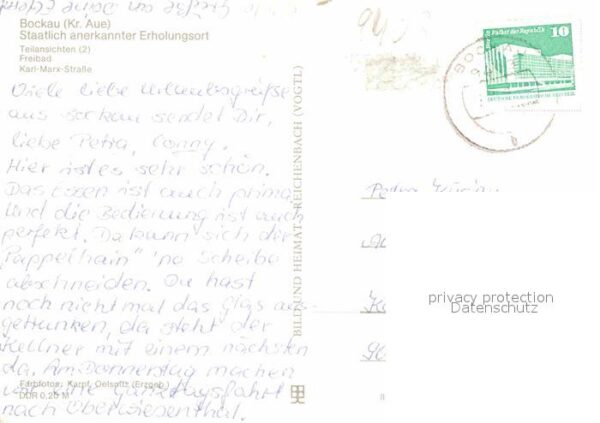 Grüße an Deine Eltern
Bockau (Kr. Aue)
Staatlich anerkannter Erholungsort
Teilansichten (2)
Freibad
Karl-Marx-Straße
Viele liebe Urlaubsgrüße
aus Bockau sendet Dir,
liebe Petra, Conny.
Hier ist es sehr schön.
Das Essen ist auch prima
und die Bedienung ist auch
perfekt. Da kann sich der
"Pappelhain" 'ne Scheibe
abschneiden. Du hast
noch nicht mal das Glas aus-
getrunken, da steht der
Kellner mit einem nächsten
da. Am Donnerstag machen
wir eine Ganztagsfahrt
nach Oberwiesenthal.
Farbfotos: Karpf, Oelsnitz (Erzgeb.)
DDR 0,20 M
BILD UND HEIMAT REICHENBACH (VOGTL)
Berlin Palast der Republik
10
DEUTSCHE DEMOKRATISCHE REPUBLIK
BOCKAU
Petra
privacy protection
Datenschutz